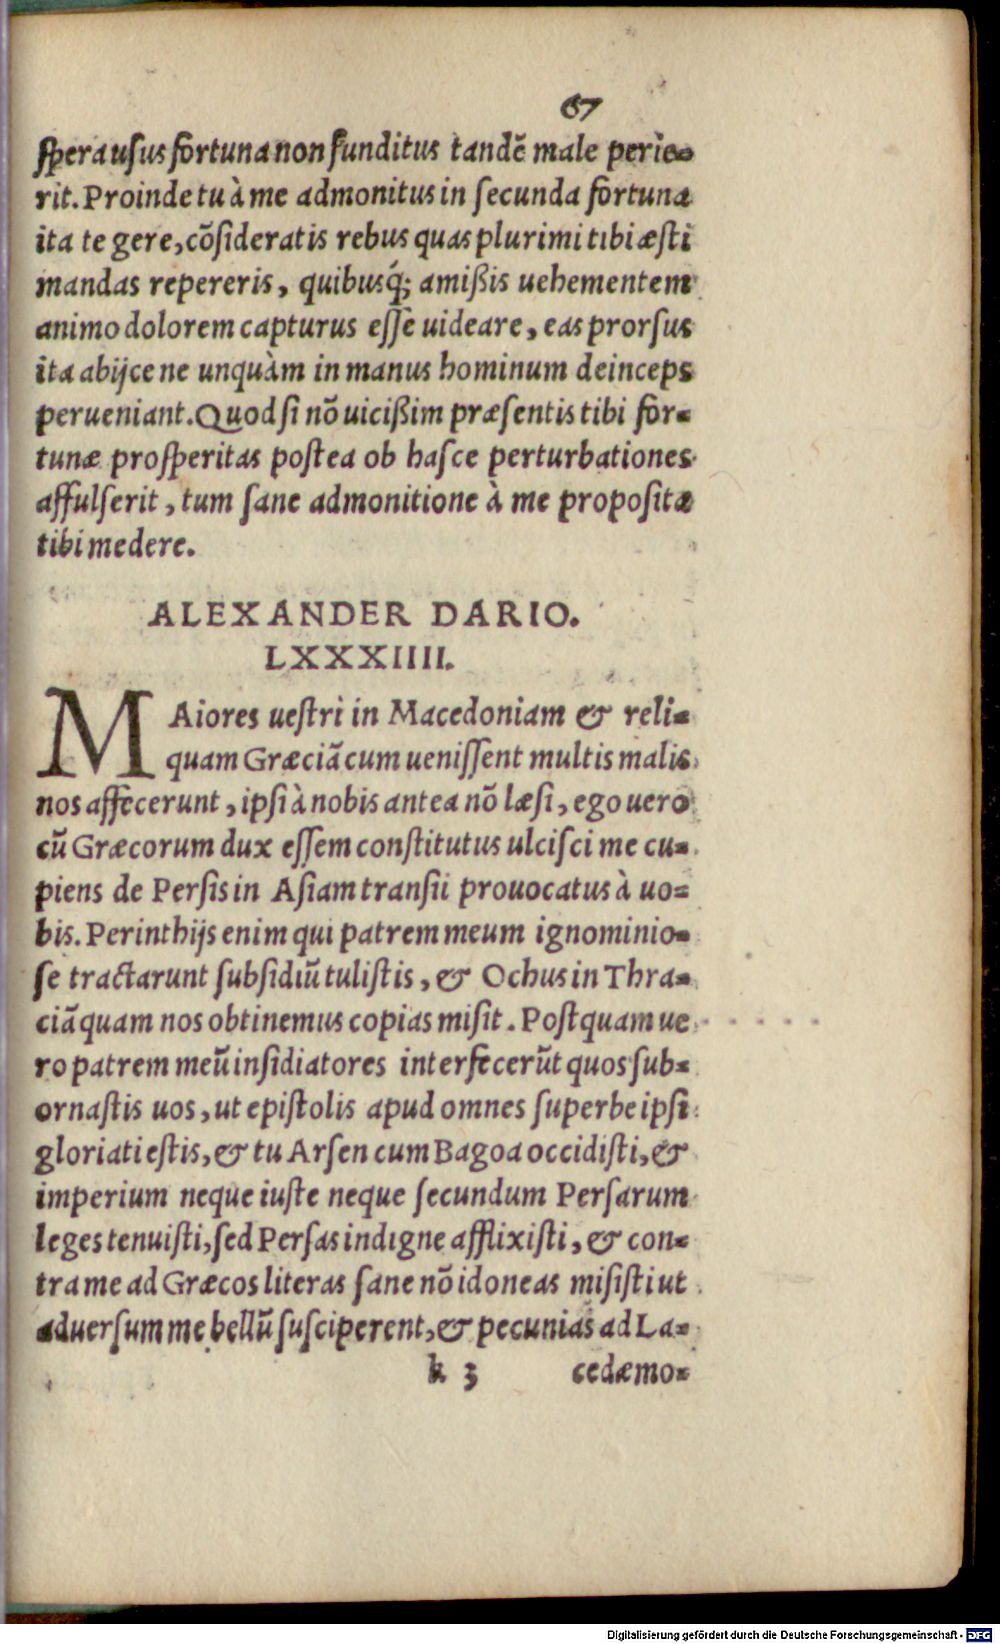 67
ſpera uſus fortuna non funditus tandē male perie-
rit. Proinde tu à me admonitus in ſecunda fortuna
ita te gere, cōſideratis rebus quas plurimi tibi æſti
mandas repereris, quibusq́; amißis uehementem
animo dolorem capturus eſſe uideare, eas prorſus
ita abijce ne unquàm in manus hominum deinceps
perueniant. Quod ſi nō uicißim præſentis tibi for-
tunæ proſperitas poſtea ob haſce perturbationes
affulſerit, tum ſane admonitione à me propoſita
tibi medere.
ALEXANDER DARIO.
LXXXIIII.
MAiores ueſtri in Macedoniam & reli-
quam Græciā cum ueniſſent multis malis
nos affecerunt, ipſi à nobis antea nō læſi, ego uero
cū Græcorum dux eſſem conſtitutus ulciſci me cu-
piens de Perſis in Aſiam tranſii prouocatus à uo-
bis. Perinthijs enim qui patrem meum ignominio-
ſe tractarunt ſubſidiū tuliſtis, & Ochus in Thra-
ciā quam nos obtinemus copias miſit. Poſtquam ue
ro patrem meū inſidiatores interfecerūt quos ſub-
ornaſtis uos, ut epiſtolis apud omnes ſuperbe ipſi
gloriati eſtis, & tu Arſen cum Bagoa occidiſti, &
imperium neque iuſte neque ſecundum Perſarum
leges tenuiſti, ſed Perſas indigne afflixiſti, & con-
tra me ad Græcos literas ſane nō idoneas miſiſti ut
aduerſum me bellū ſuſciperent, & pecunias ad La-
k 3 cedæmo-
Digitalisierung gefördert durch die Deutsche Forschungsgemeinschaft - DFG